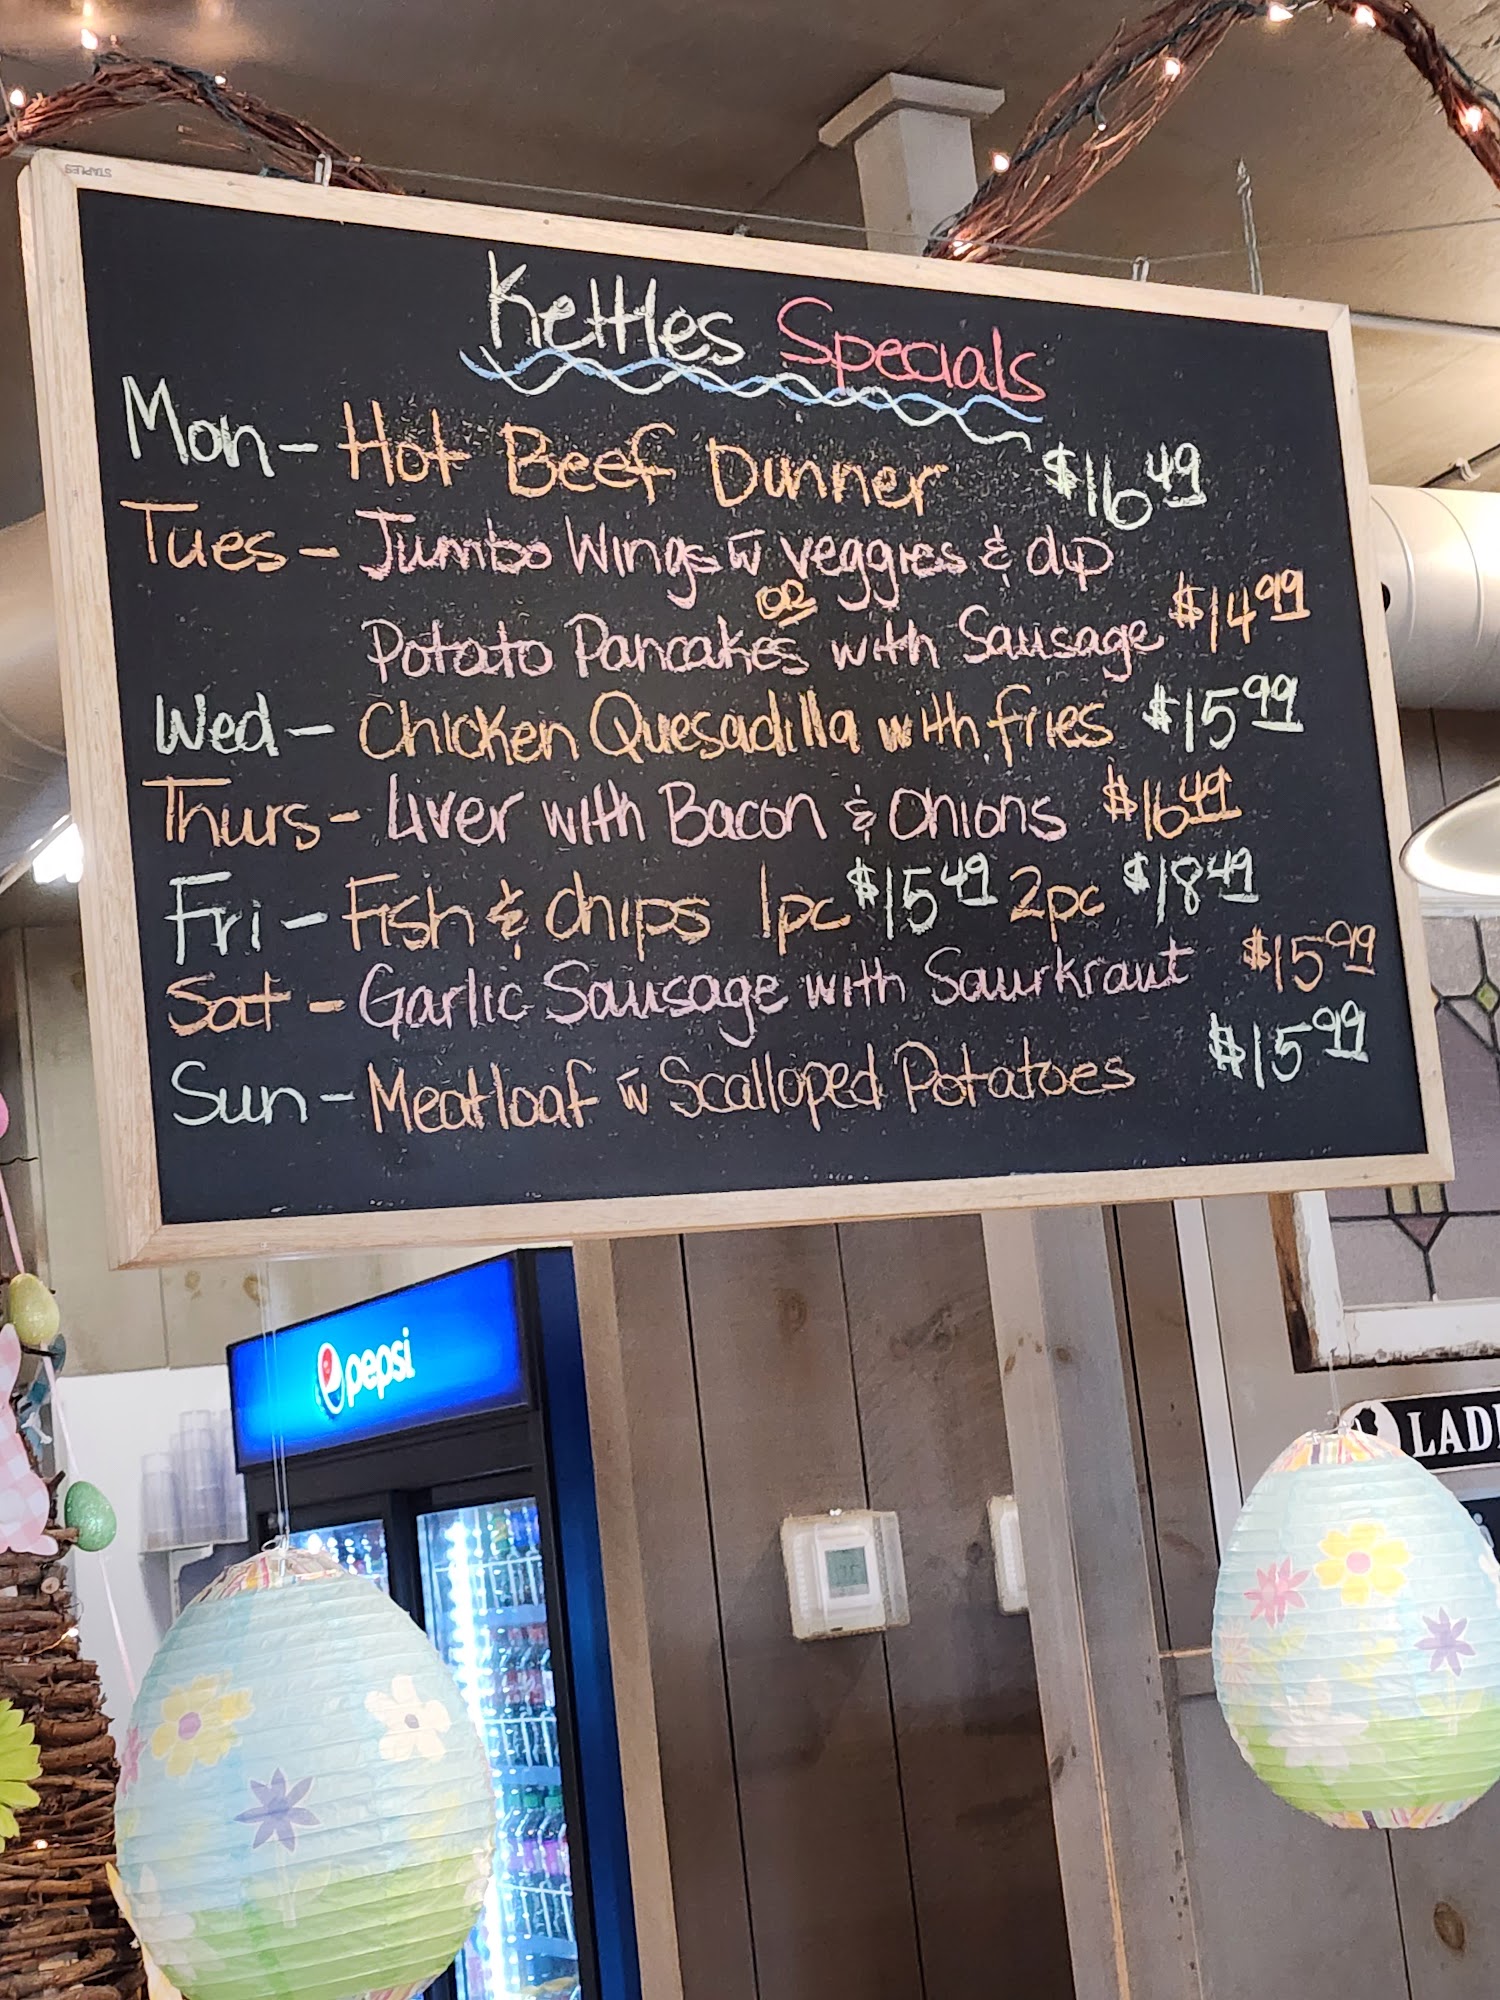 STAPLES
Kettles Specials
Mon - Hot Beef Dinner $16.49
Tues - Jumbo Wings w veggies & dip
OR
Potato Pancakes with Sausage $14.99
Wed - Chicken Quesadilla with fries $15.99
Thurs - Liver with Bacon & Onions $16.49
Fri - Fish & chips 1pc $15.49 2pc $18.49
Sat - Garlic Sausage with Saurkraut $15.99
Sun - Meatloaf w Scalloped Potatoes $15.99
pepsi
LADI